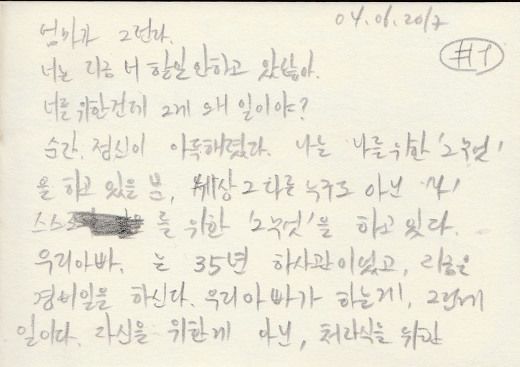 04.01.2017
#1
엄마가 그런다.
너는 지금 너 할일 안하고 있잖아.
너를 위한건데 그게 왜 일이야?
순간, 정신이 아득해졌다. 나는 나를 위한 '그무엇'
을 하고 있을 뿐, 세상 그 다른 누구도 아닌 '나'
를 위한 '그무엇'을 하고 있다.
우리아빠. 는 35년 하사관이었고, 지금은
경비일을 하신다. 우리아빠가 하는게, 그런게
일이다. 자신을 위한게 아닌, 처자식을 위한